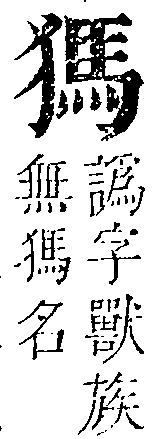 獁
譌字獸族
無獁名